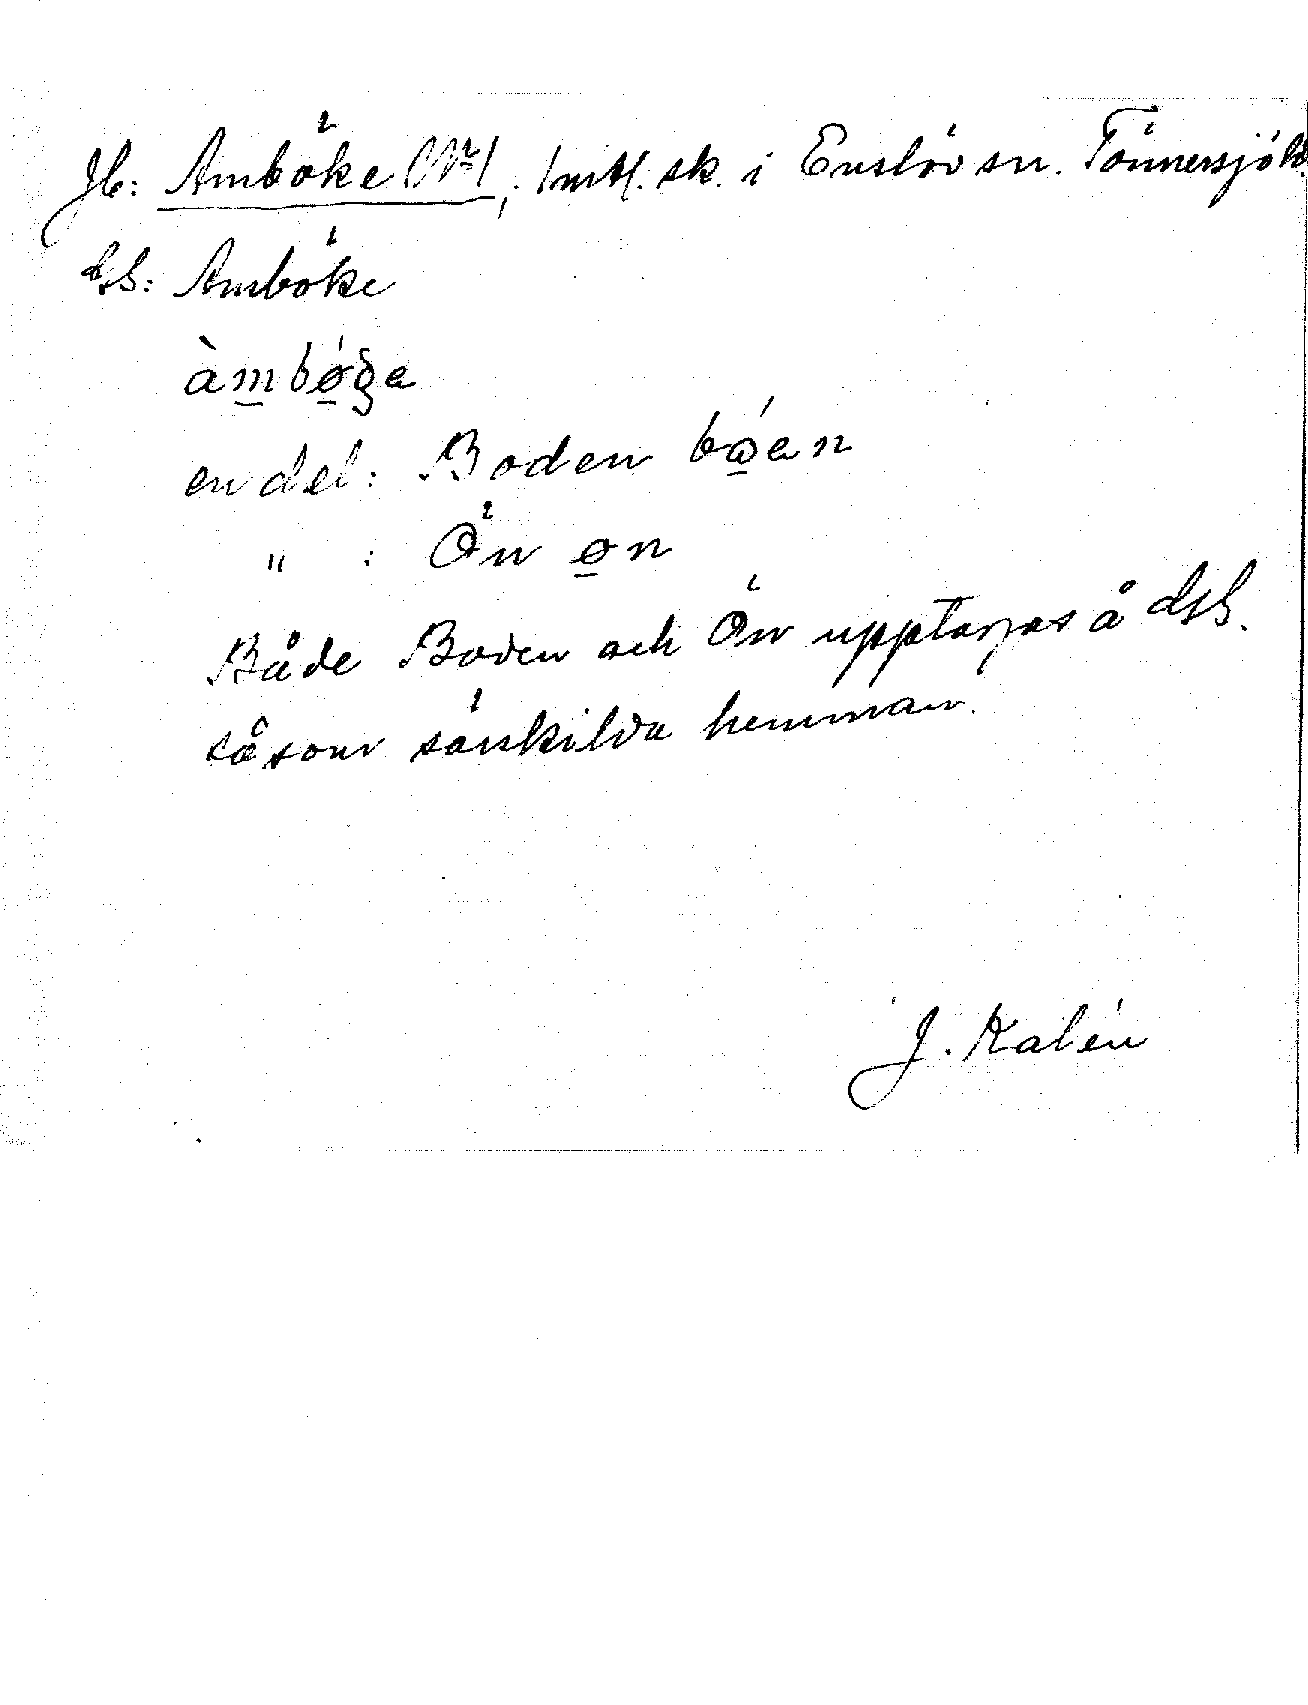 Jb: Amböke Nr 1, 1 mtl. sk. i Enslöv sn. Tönnersjö hd.
GS: Amböke
àmbø̀ǥa
en del: Boden bǿen
" : Ön øn
Både Boden och Ön upptagas å GS.
såsom särskilda hemman.
J. Kalén